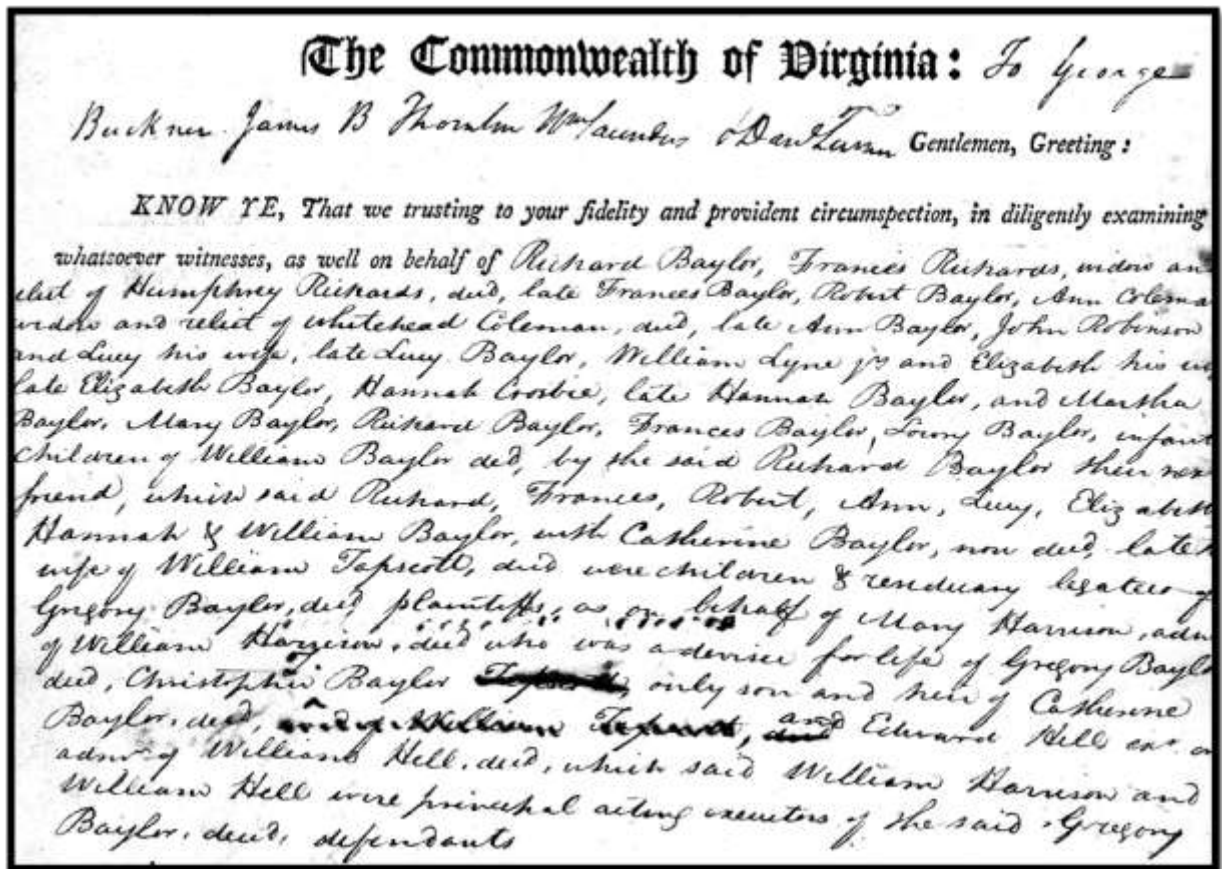 The Commonwealth of Virginia: To George
Buckner James B Thornton Wm Saunders & Gentlemen, Greeting:
KNOW YE, That we trusting to your fidelity and provident circumspection, in diligently examining
whatsoever witnesses, as well on behalf of Richard Baylor, Frances Richards, widow an
relict of Humphrey Richards, decd, late Frances Baylor, Robert Baylor, Ann Colema
widow and relict of Whitehead Coleman, decd, late Ann Baylor, John Robinson
and Lucy his wife, late Lucy Baylor, William Lyne jr and Elizabeth his
late Elizabeth Baylor, Hannah Crosbie, late Hannah Baylor, and Martha
Baylor, Mary Baylor, Richard Baylor, Frances Baylor, Lowry Baylor, infant
children of William Baylor decd, by the said Richard Baylor their nex
friend, which said Richard, Frances, Robert, Ann, Lucy, Elizabeth
Hannah & William Baylor, with Catherine Baylor, now decd, late
wife of William Tapscott, decd were children & residuary legatees of
Gregory Baylor, decd plaintiffs, as on behalf of Mary Harrison, adm
of William Harrison, decd who was a devisee for life of Gregory Baylo
decd, Christopher Baylor only son and heir of Catherine
Baylor, decd, and of William Tapscott, and Edward Hill exr or
admr of William Hill, decd, which said William Harrison and
William Hill were principal acting executors of the said Gregory
Baylor, decd, defendants